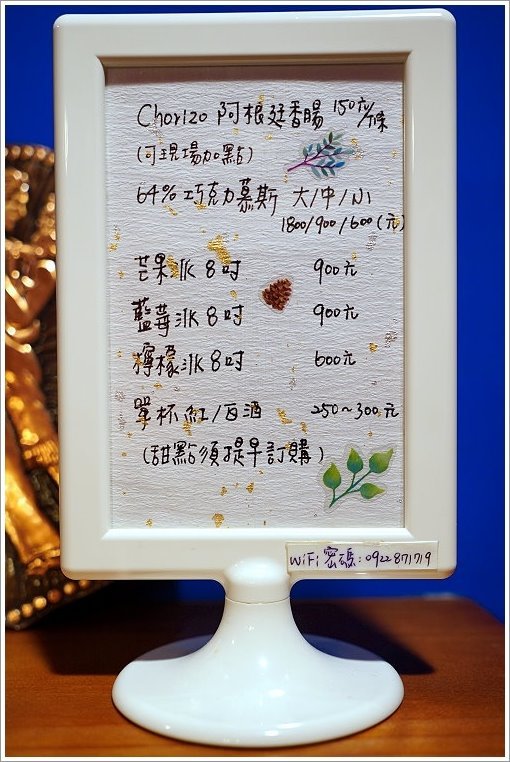 Chorizo 阿根廷香腸 150元/條
(可現場加點)
64% 巧克力慕斯 大/中/小
1800/900/600(元)
芒果冰 8吋 900元
藍莓冰 8吋 900元
檸檬冰 8吋 600元
單杯紅/白酒 250~300元
(甜點須提早訂購)
WiFi 密碼:0922871719